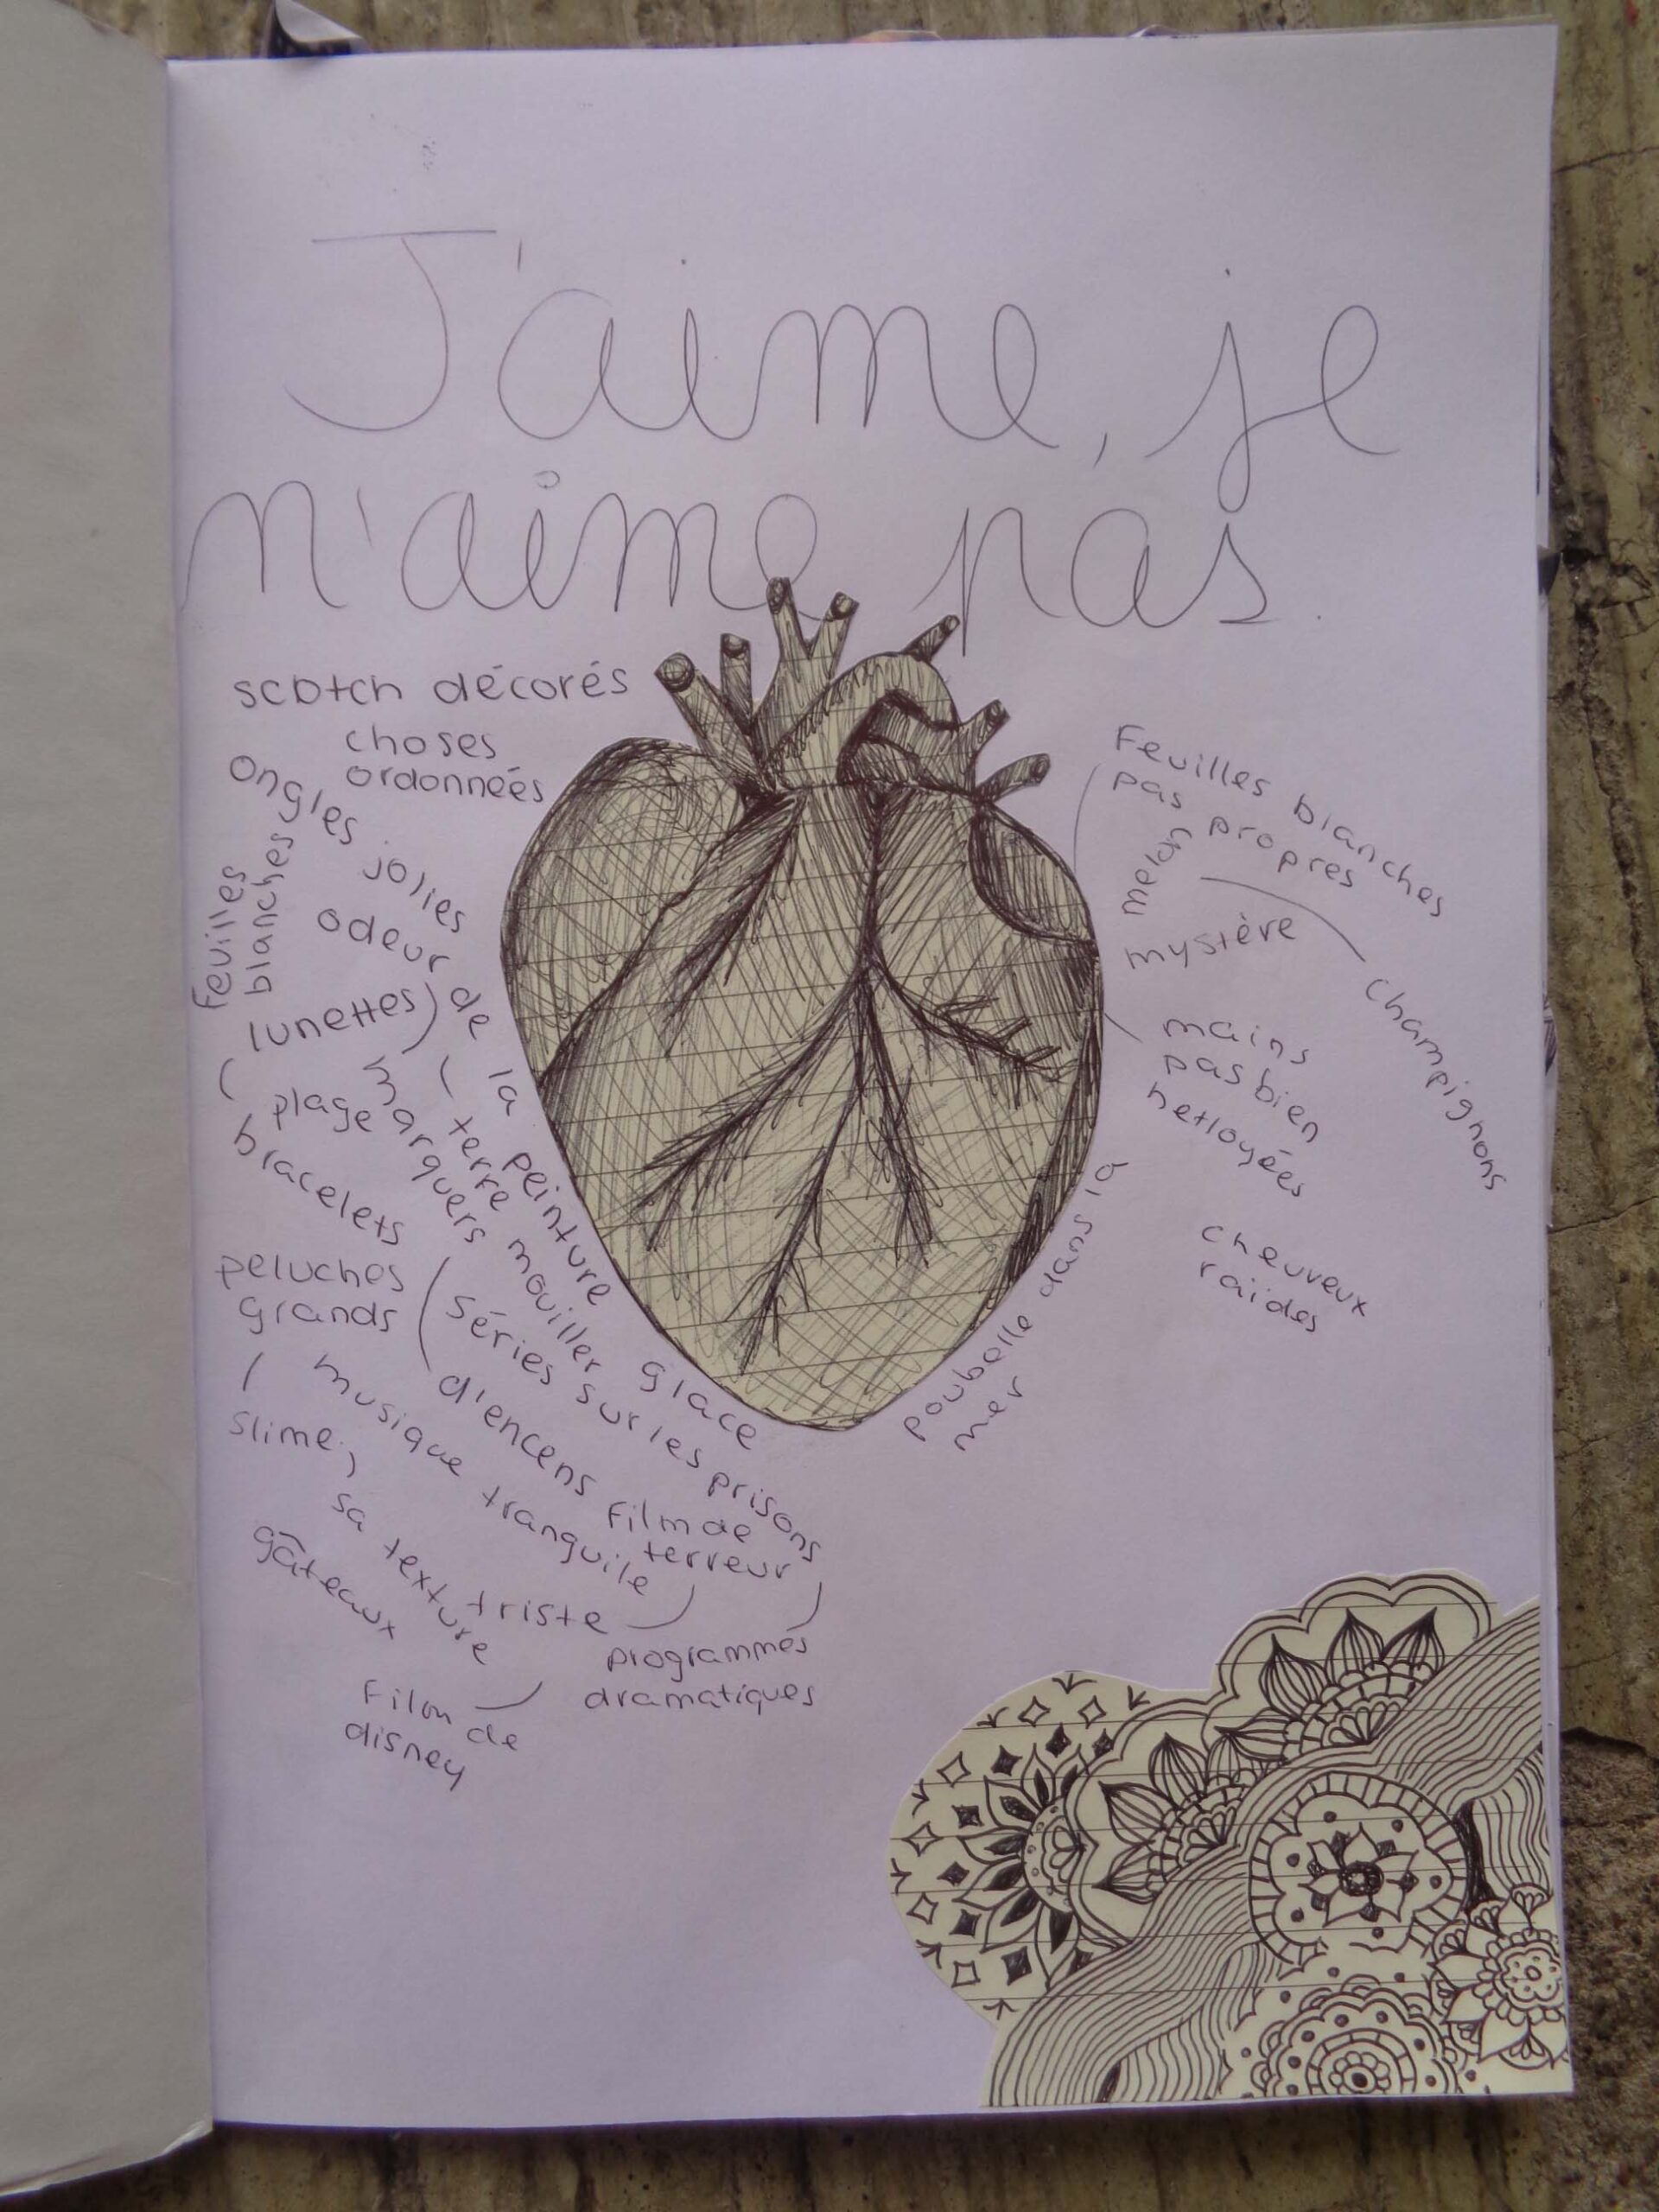 J'aime, je
n'aime pas.
scotch décorés
choses
ordonneés
Ongles jolies
Feuilles
blanches
odeur de la peinture
lunettes
marquers
terre mouiller
plage
bracelets
peluches
grands
séries sur les prisons
d'encens
glace
musique tranquile
triste
film de
terreur
slime,
sa texture
gâteaux
programmes
dramatiques
Film de
disney
Feuilles blanches
pas propres
melon
mystère
champignons
mains
pas bien
netloyées
cheuveux
raides
poubelle dans la
mer